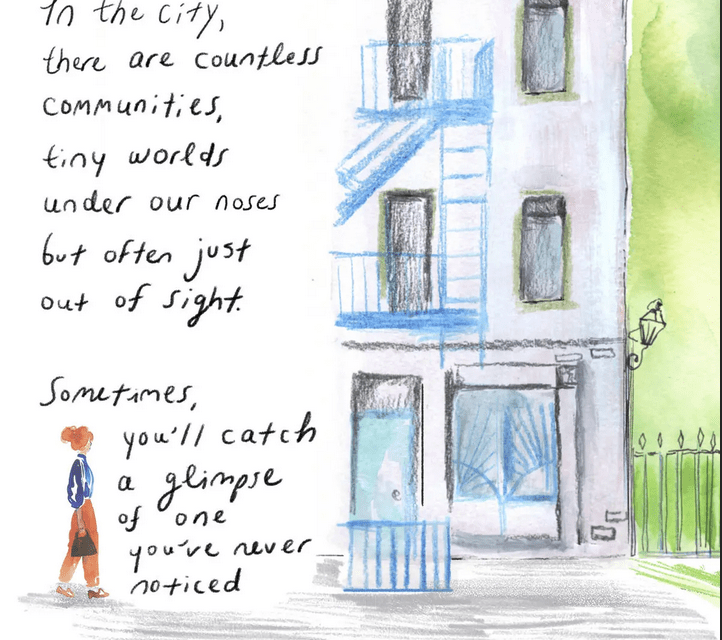 In the city,
there are countless
communities,
tiny worlds
under our noses
but often just
out of sight.
Sometimes,
you'll catch
a glimpse
of one
you've never
noticed